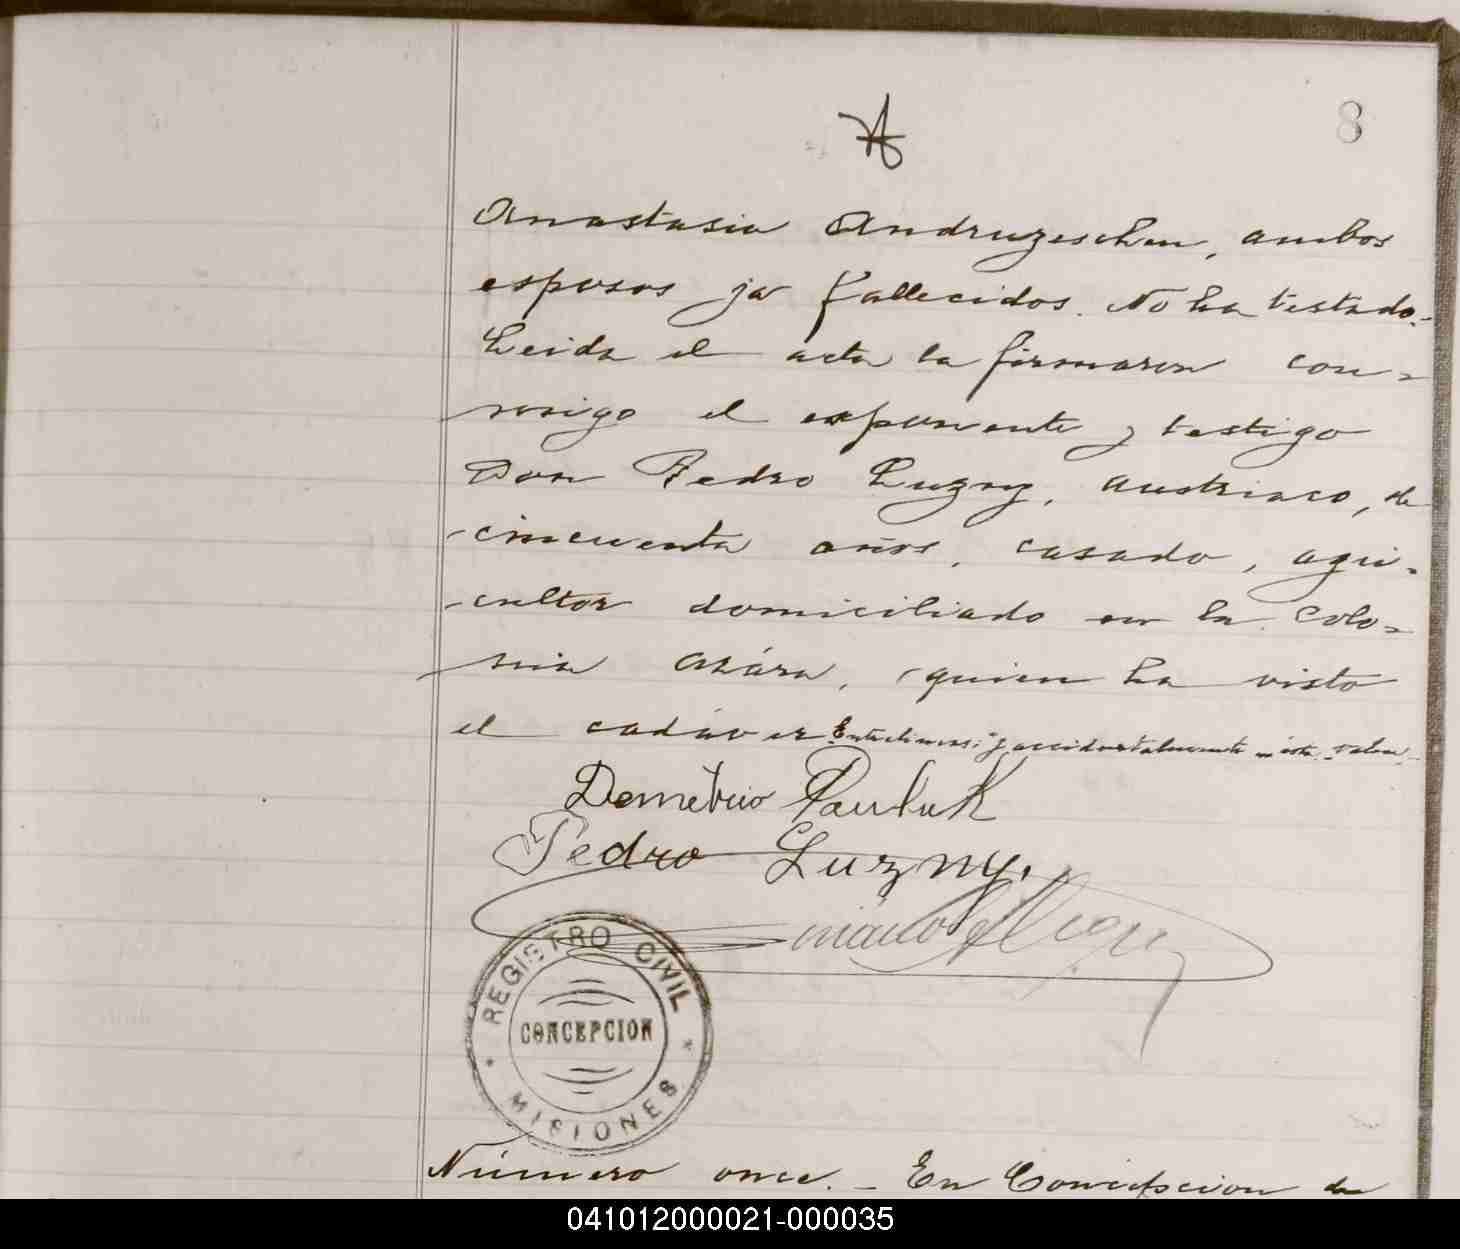 8
Anastasia Andruzeschen, ambos
esposos ja fallecidos. No ha testado.-
Leida el acta la firmaron con-
migo el exponente y testigo
Don Pedro Luzny, austriaco, de
cincuenta años, casado, agri-
-cultor domiciliado en la Colo-
nia Azára, quien ha visto
el cadáver Entrelineas: y accidentalmente en ésta - valen.-
Demetrio Pauluk
Pedro Luzny.
REGISTRO CIVIL
CONCEPCION
MISIONES
Número once. - En Concepcion de
041012000021-000035